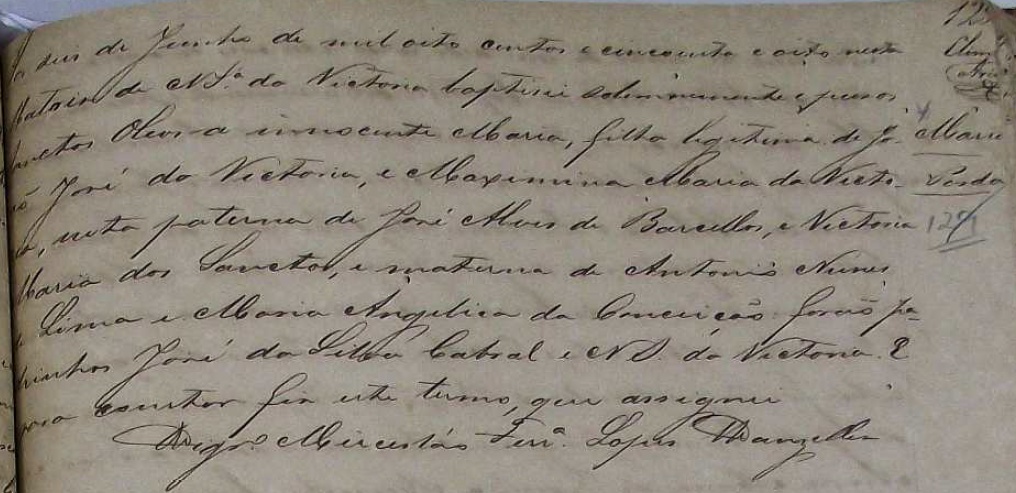 A seis de Junho de mil oito centos e cincoenta e oito nesta
Matris de N S.ª da Victoria baptisei solemnemente e pus os
Sanctos Oleos a innocente Maria, filha legitima de Jo-
José da Victoria, e Maximina Maria da Victo-
neta paterna de José Alves de Barcellos, e Victoria
Maria dos Sanctos, e materna de Antonio Nunes
Lima e Maria Angelica da Conceição forão pa-
drinhos José da Silva Cabral e N S. da Victoria. E
para constar fis este termo, que assignei
Vigr.º Lopes
Maria
Parda